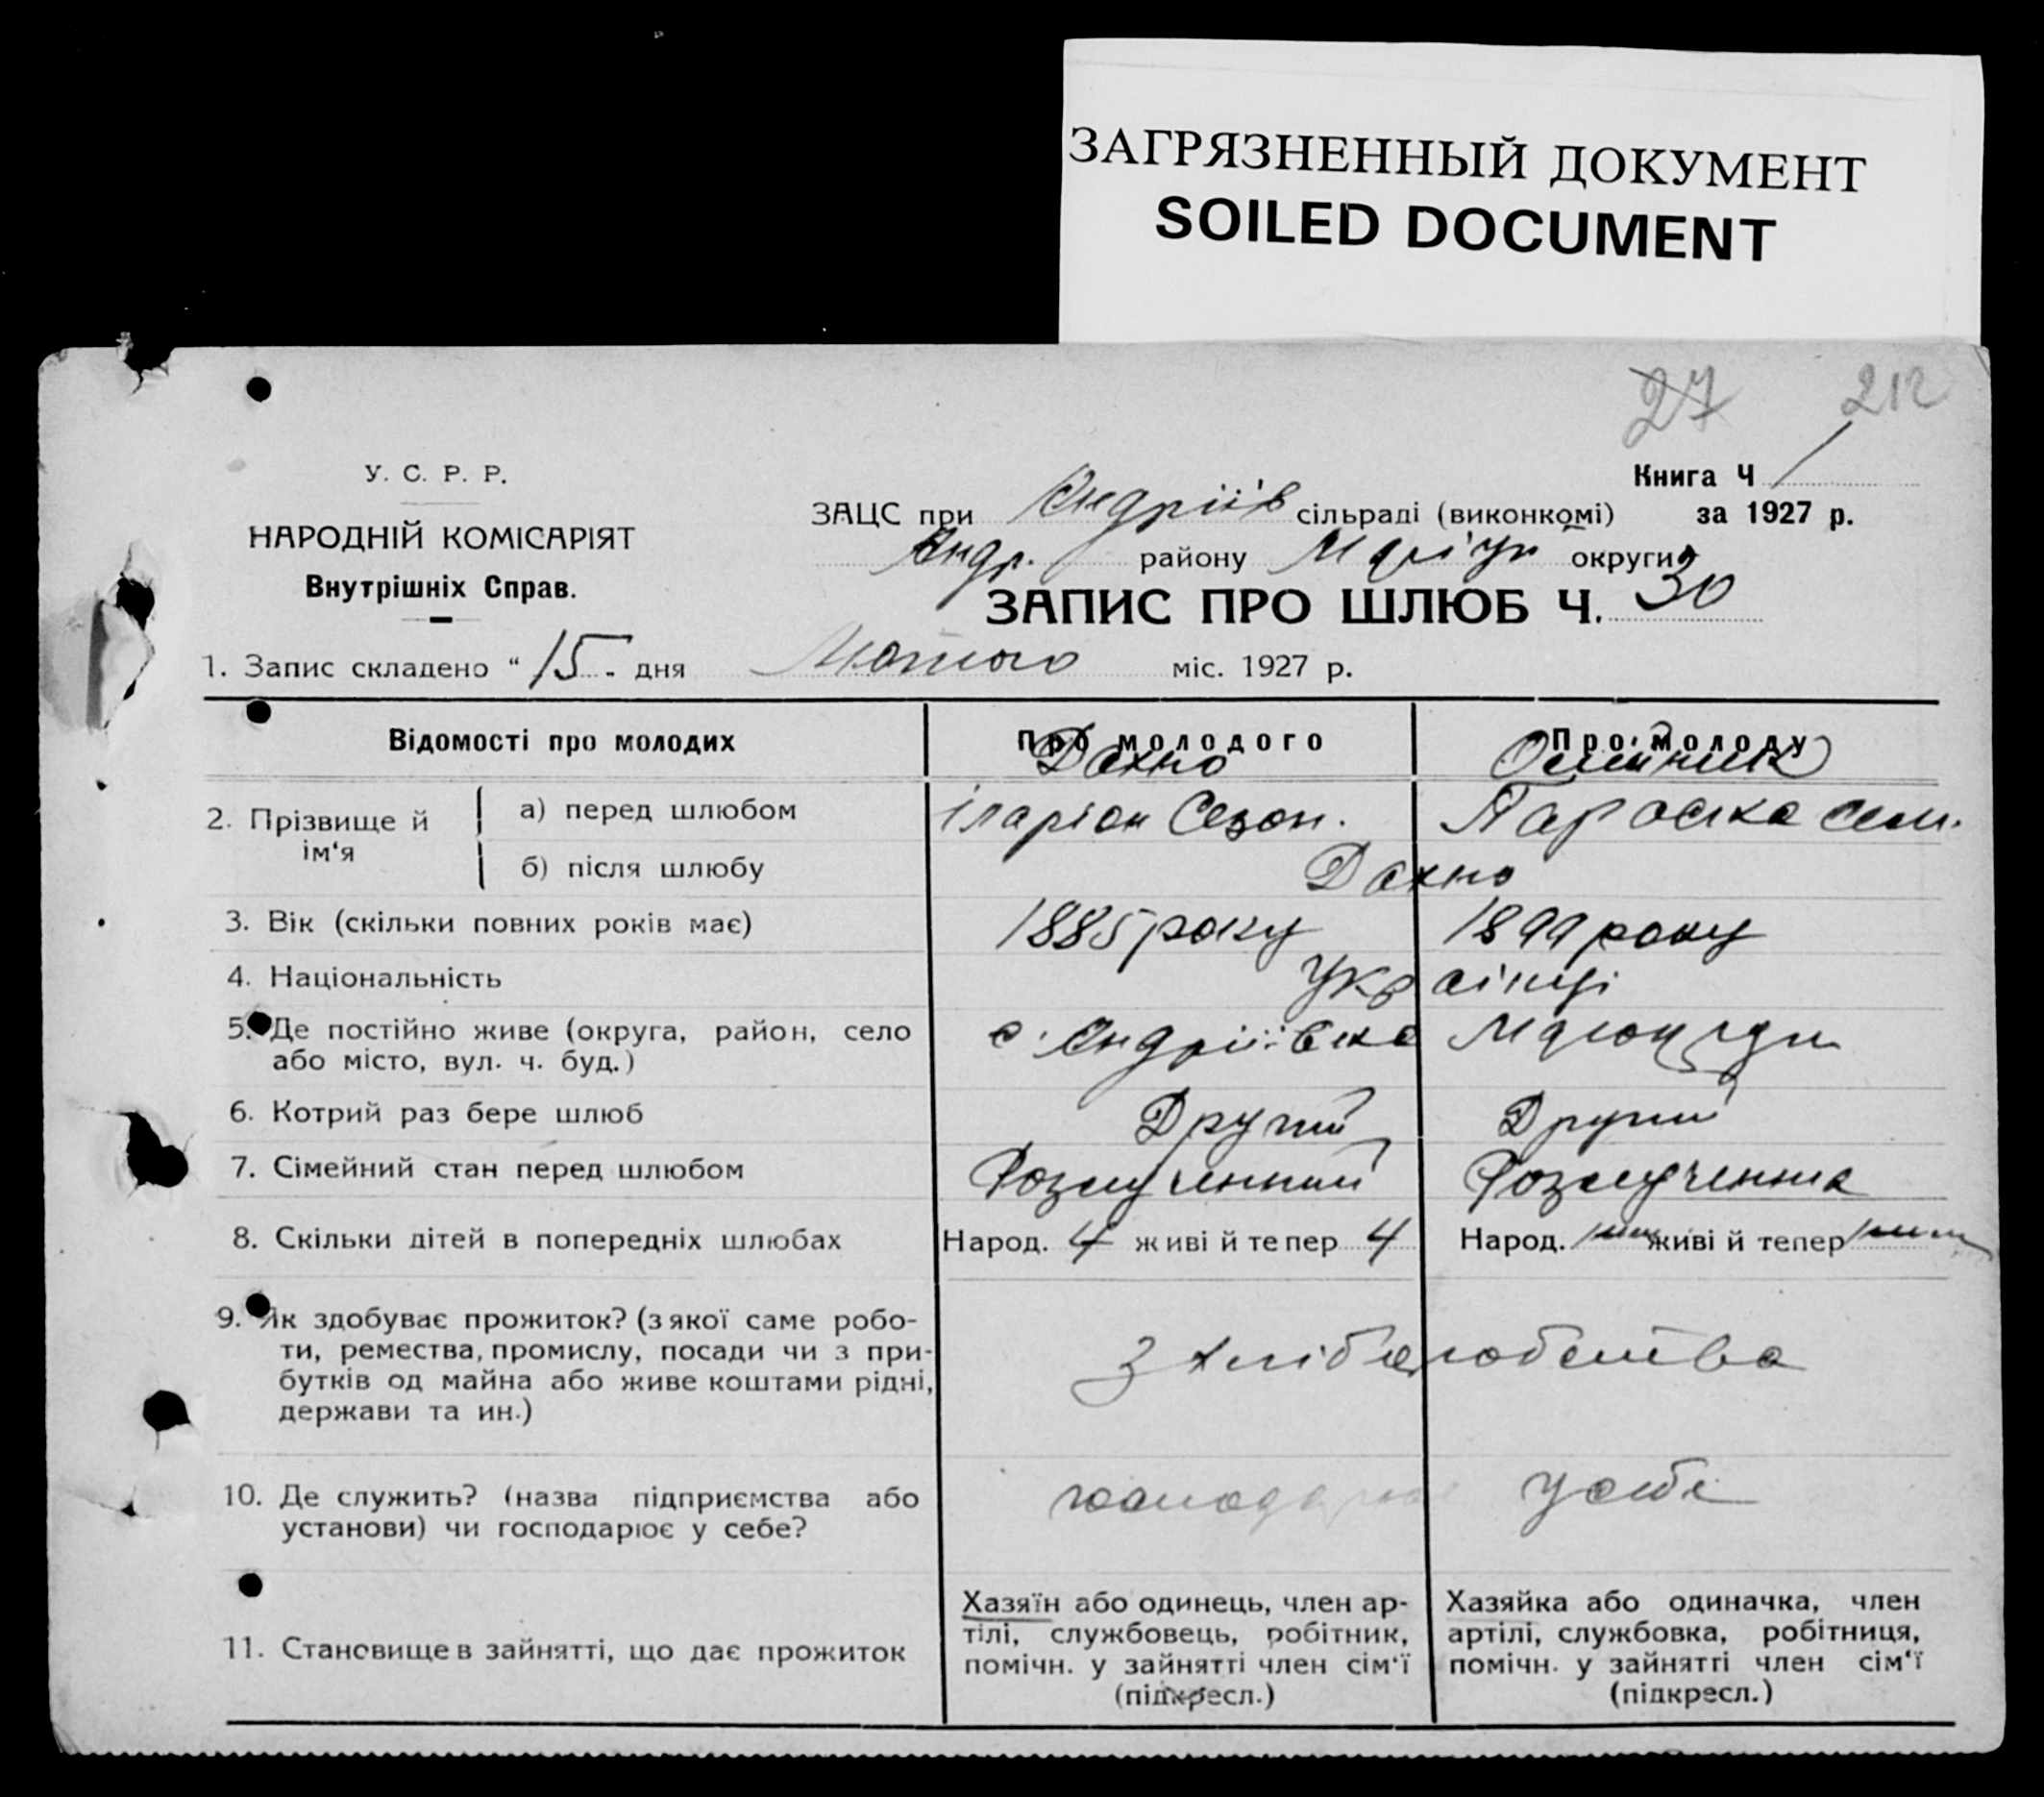 ЗАГРЯЗНЕННЫЙ ДОКУМЕНТ
SOILED DOCUMENT
27 212
У. С. Р. Р.
НАРОДНІЙ КОМІСАРІЯТ
Внутрішніх Справ.
Книга Ч 1
за 1927 р.
ЗАЦС при Андріїв сільраді (виконкомі)
Андр. району Маріуп округи
ЗАПИС ПРО ШЛЮБ Ч. 30
1. Запис складено “ 15 - дня Лютого міс. 1927 р.
Відомості про молодих
Про молодого
Про молоду
2. Прізвище й ім‘я
а) перед шлюбом
Дахно
Іларіон Сезон.
Олійник
Параска Сем.
б) після шлюбу
Дахно
3. Вік (скільки повних років має)
1885 року
1899 року
4. Національність
Українці
5. Де постійно живе (округа, район, село
або місто, вул. ч. буд.)
с. Андріївка
6. Котрий раз бере шлюб
Другий
Другий
7. Сімейний стан перед шлюбом
Розлученний
Розлученна
8. Скільки дітей в попередніх шлюбах
Народ. 4 живі й тепер 4
Народ. живі й тепер
9. Як здобуває прожиток? (з якої саме робо-
ти, ремества, промислу, посади чи з при-
бутків од майна або живе коштами рідні,
держави та ин.)
з хліборобства
10. Де служить? (назва підприємства або
установи) чи господарює у себе?
у себе
11. Становище в зайнятті, що дає прожиток
Хазяїн або одинець, член ар-
тілі, службовець, робітник,
помічн. у зайнятті член сім‘ї
(підкресл.)
Хазяйка або одиначка, член
артілі, службовка, робітниця,
помічн. у зайнятті член сім‘ї
(підкресл.)